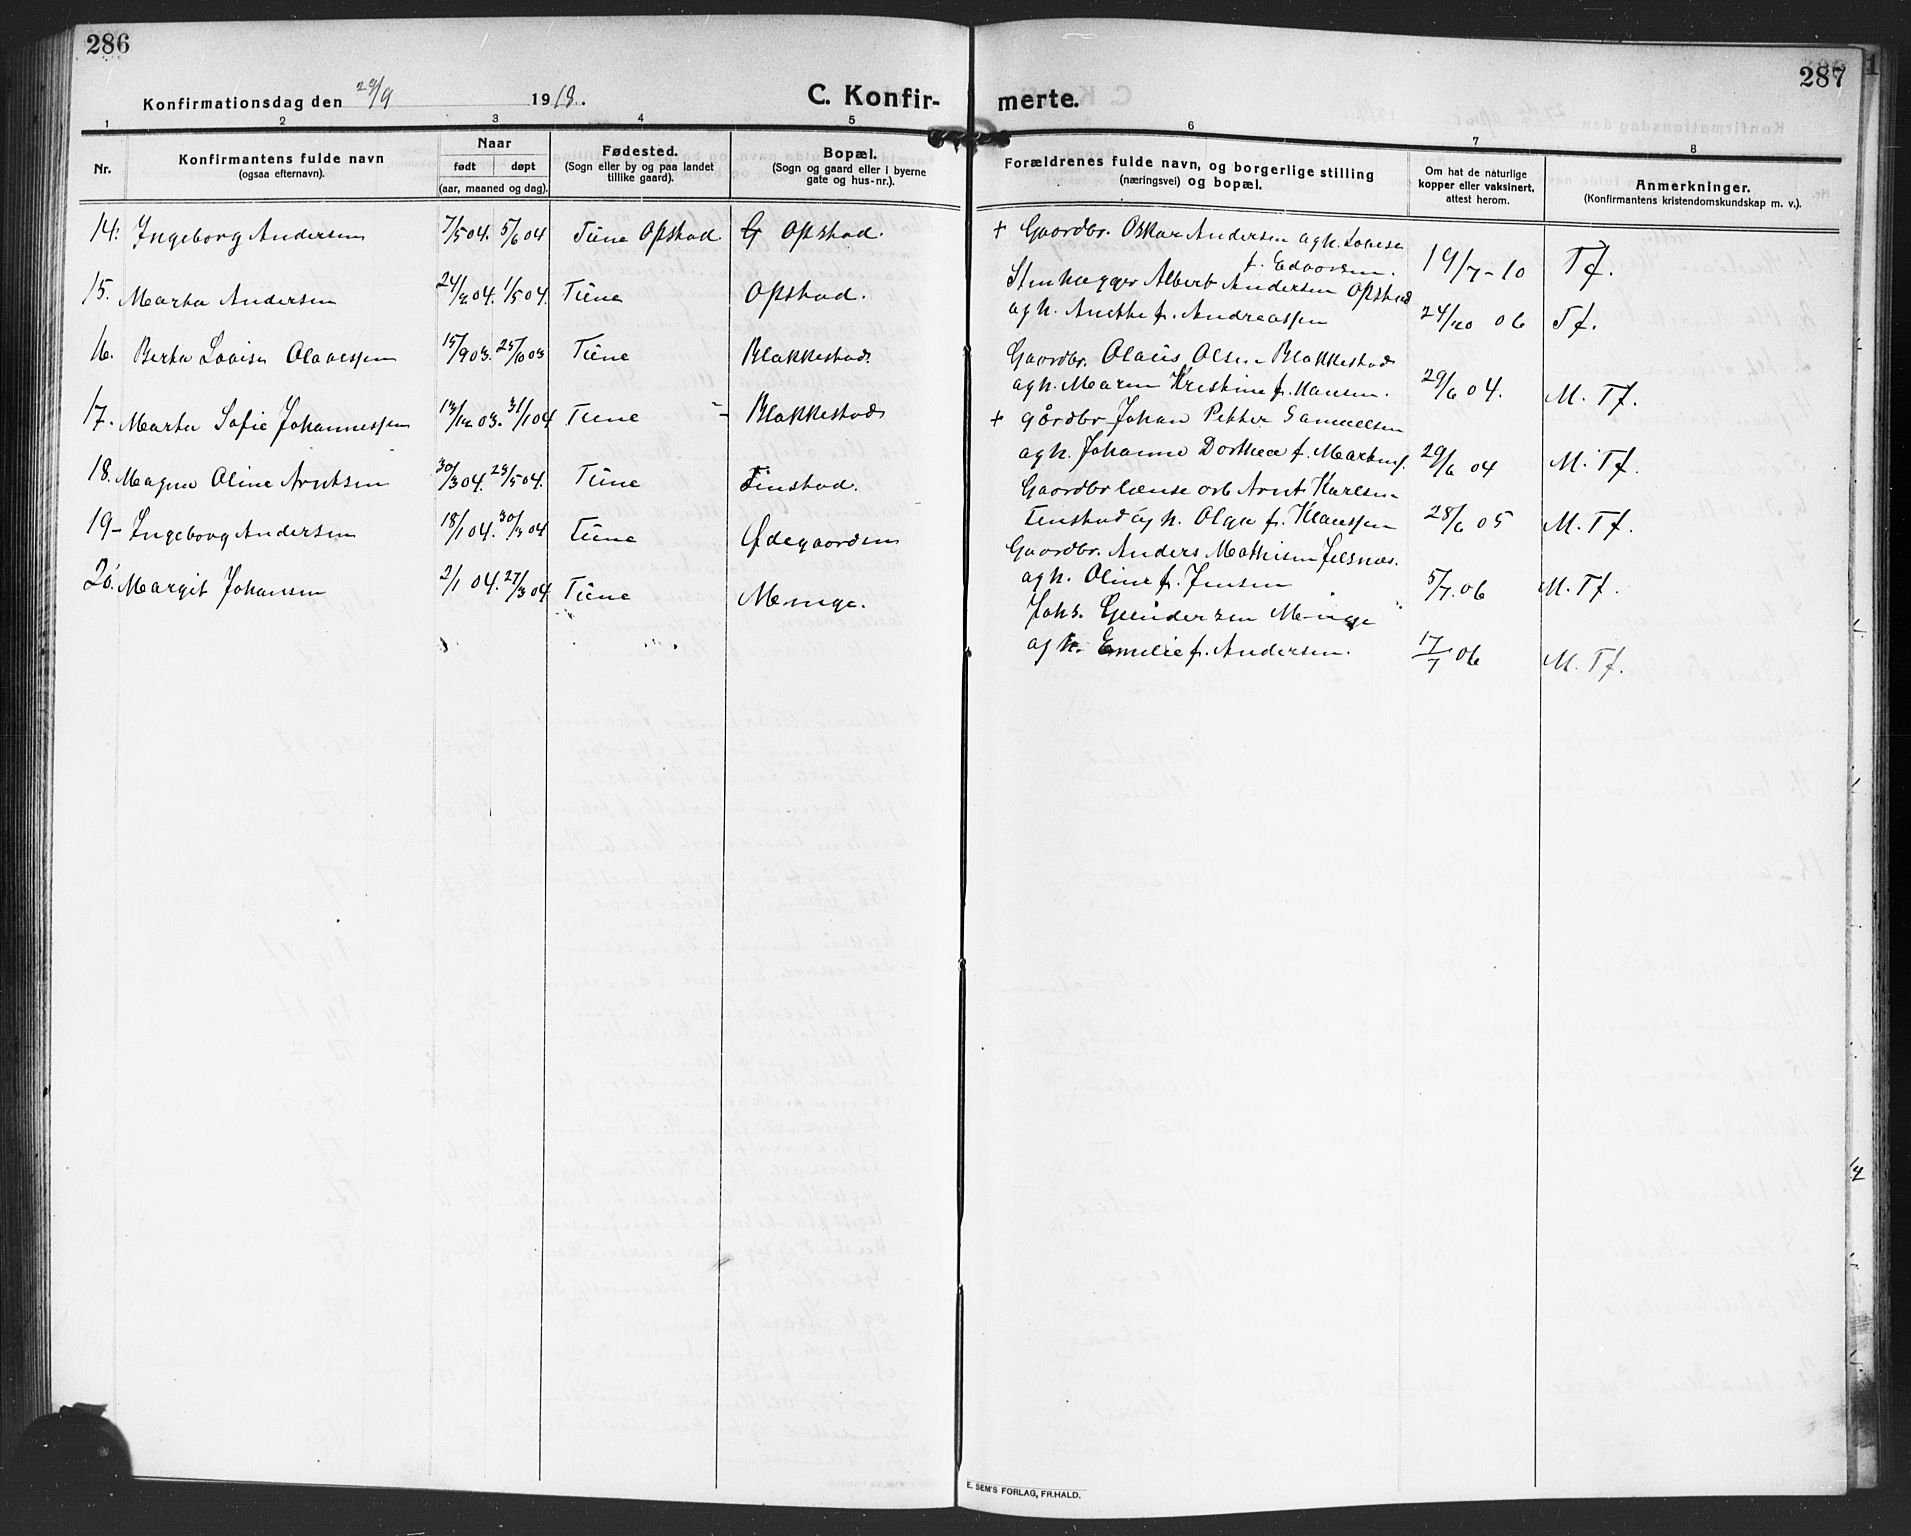 286
Konfirmationsdag den 29/9 1918.
C. Konfir-
1 2 3 4 5
Nr. Konfirmantens fulde navn (ogsaa efternavn). Naar født døpt (aar, maaned og dag). Fødested. (Sogn eller by og paa landet tillike gaard). Bopæl. (Sogn og gaard eller i byerne gate og hus-nr.).
14. Ingeborg Andersen 7/5 04. 5/6 04 Tune Opstad. Opstad.
15. Marta Andersen 24/2 04. 1/5 04. Tune Opstad.
16. Berta Lovise Olavessen 15/9 03. 25/ 03 Tune Blakkestad
17. Marta Sofie Johannessen 13/12 03. 31/1 04 Tune - Blakkestad
18. Magna Oline Arntsen 30/3 04. 23/5 04. Tune Tinstad.
19- Ingeborg Andersen 18/1 04. 30/3 04 Tune Ødegaarden
20. Margit Johansen 2/1 04. 27/3 04 Tune Minge.
287
merte.
6 7 8
Forældrenes fulde navn, og borgerlige stilling (næringsvei) og bopæl. Om hat de naturlige kopper eller vaksinert, attest herom. Anmerkninger. (Konfirmantens kristendomskundskap m. v.).
+ Gaardbr. Oskar Andersen og h. Lovise
f. Edvardsen. 19/7-10 Tf.
Stenhugger Albert Andersen Opstad
og h. Anette f. Andreassen 24/10 06 Tf.
Gaardbr. Olaus Olsen Blakkestad
og h. Maren Kristine f. Hansen. 29/6 04. M. Tf.
+ gårdbr. Johan Petter Samuelsen
og h. Johanne Dorthea f. 29/6 04 M. Tf.
Gaardbr Arnt Karlsen
Tinstad og h. Olga f. Klaussen 28/6 05 M. Tf.
Gaardbr. Anders Mathisen
og h. Oline f. Jensen 5/7.06 M. Tf.
Johs. Gundersen Minge
og h. Emilie f. Andersen. 17/7 06 M. Tf.
E. SEM'S FORLAG, FR.HALD.